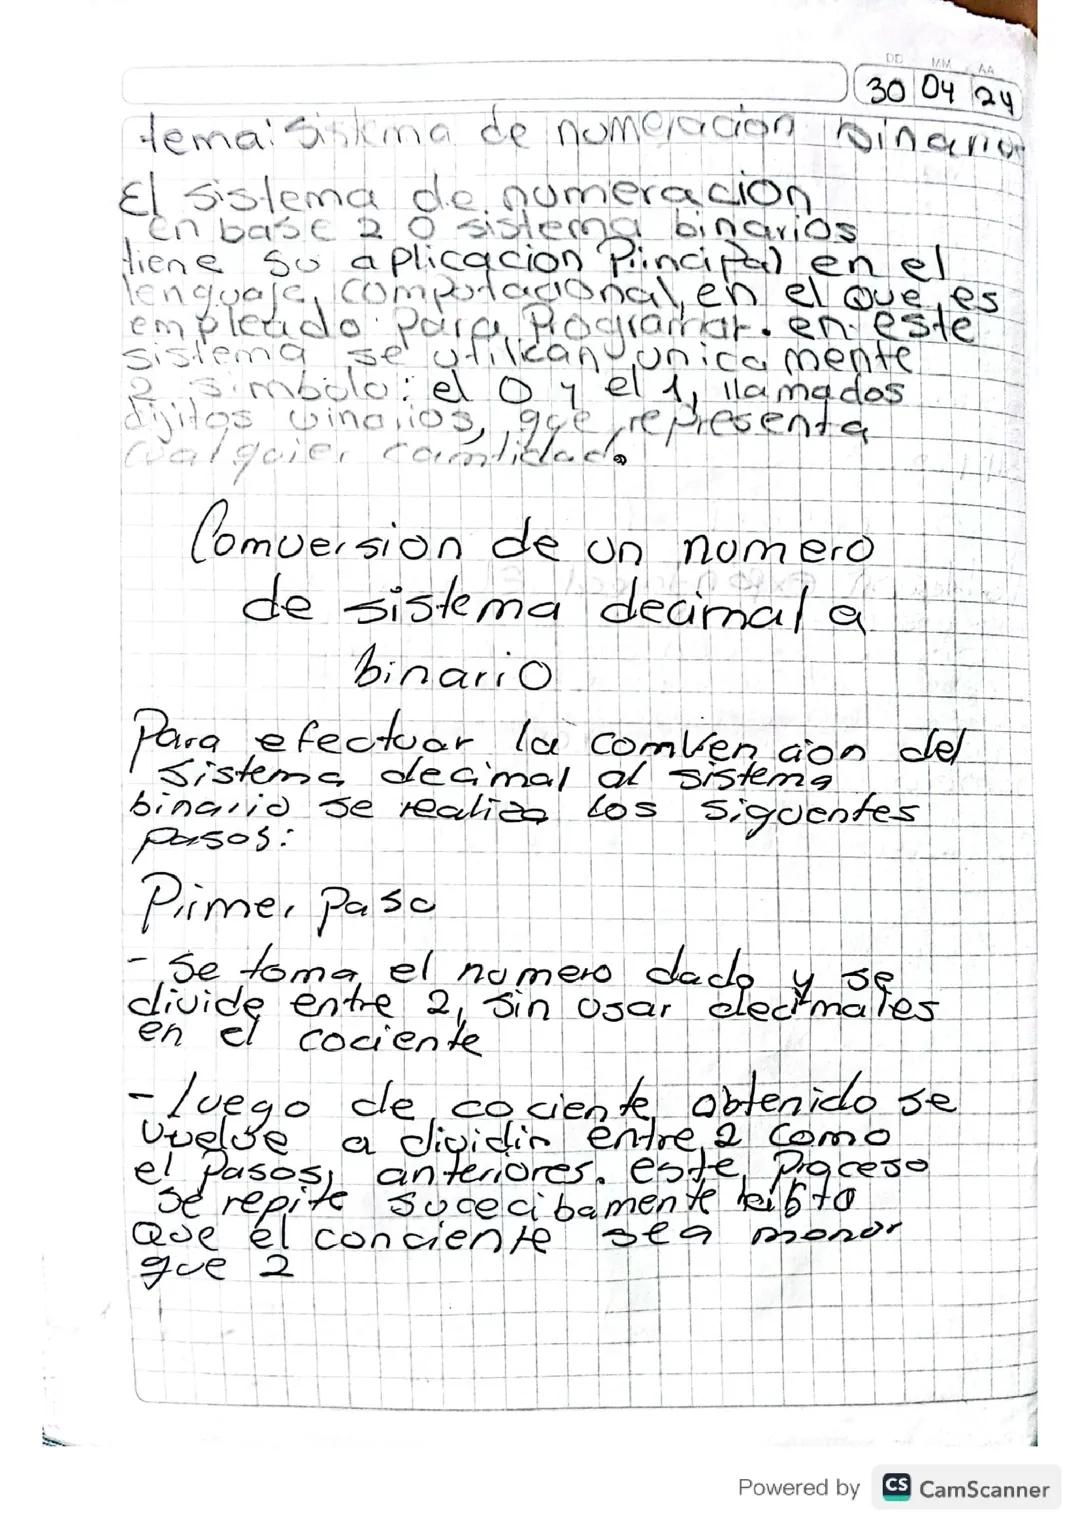 DD MM AA
30 04 24
tema: Sistema de numeracion binarios
El sistema de numeracion
en base 2 o sistema binarios
tiene su aplicacion Principal en el
lenguaje, computacional, en el que es
empleado para Programar. en este
sistema se utilizan unica mente
2 simbolo: el 0 y el 1, llamados
dijitos vinarios, que representa
cualquier cantidad.
Comversion de un numero
de sistema decimal a
binario
Para efectuar la comvencion del
sistema decimal al sistema
binario se realiza los siguentes
pasos:
Primer paso
- Se toma el numero dado y se
divide entre 2, sin usar decimales
en el cociente
- luego de cociente obtenido se
vuelve a dividir entre 2 como
el pasos, anteriores. este Proceso
se repite sucecibamente
Que el conciente sea monor
que 2
Powered by CS CamScanner